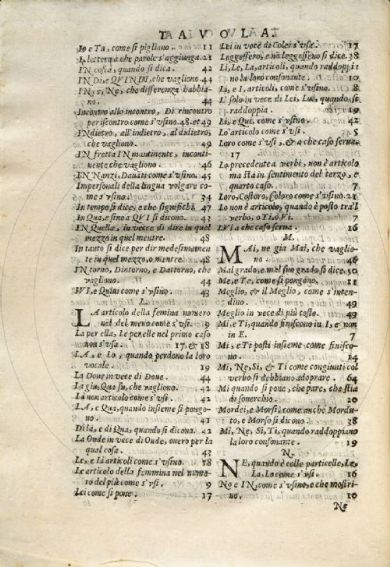 Io e Ta, come si pigliano. 11
I, lettera che parole s'aggiunga. 21
IN costà, quando si dica. 42
IN Di, e QVINDI, che vagliono. 44
IN, e Ne, che differenza habbiano. 44
Incontro allo incontro, Di rincontro
per iscontro come s'vsino. 48. e 49
INdietro, all'indietro, al didietro,
che vagliono. 49
IN fretta INmantinente, incontinente
che vagliono. 46
IN Nanzi, Dauati come s'vsino. 45
Impersonali della lingua volgare come
s'vsino. 34
In tempo si dice, e che significhi.
In Qua, e sino a QVI si dicono. 42
IN Quella, in vece di dire in quel
mezzo in quel mentre. 48
In tanto si dice per dir medesimamente
in quel mezzo, o mentre. 48
INtorno, Dintorno, e Dattorno, che
vagliono. 44
IVI, e Quini come s'vsino. 43
L.
LA articolo della femina numero
nel del meno come s'vsi. 9
La per ella, Le per elle nel primo caso
non s'vsa. 17. & 18
LA, e Lo, quando perdono la loro
vocale. 19
La Doue in vece di Doue. 44
La giu, Qua su, che vagliono. 42
La non articolo come s'vsi. 42
LA, e Qua, quando insieme si pongono.
41
Di là, e di Qua, quando si dicono. 42
La Onde in vece di Onde, ouero per la
qual cosa. 43
Le, e Li articoli come s'vsino. 18
Le articolo della femmina nel numero
del più come s'vsi. 9
Lei come si pone. 17
Lei in vece di Colei s'vsa. 17
Leggessero, e nò leggessono si dice. 38
Li, Le, La, articoli, quando raddoppino
la loro consonante. 10
Li, e I, articoli, come s'vsino. 8
L' solo in vece di Lei, Lui, quando si
raddoppia. 19
Li, e Qui, come s'vsino. 41
Lo articolo come s'vsi. 7
Loro come s'vsi, & a che caso serua.
17
lo precedente a verbi, non è articolo
ma sta in sentimento del terzo, e
quarto caso. 7
Loro, Costoro, Coloro come s'vsino. 21
Lo non è articolo, quando è posto tra'l
verbo, o Ti, o Vi. 7
LVI a che caso serua. 16
M.
MAi, ne già Mai, che vagliono.
46
Mal grado, e mal suo grado si dice. 50
Me, e Te, come si pongono. 11
Meglio, & il Meglio, come s'intendino.
49
Meglio in vece di più tosto. 49
Mi, e Ti, quando finiscono in I, e non
in E. 7
Mi, e Ti posti insieme come finiscono.
14
Mi, Ne, Si, e Ti come congiunti col
verbo si debbano adoprare. 64
Mi quando si pone, che pare, che stia
di souerchio. 20
Mordei, e Morsi come anche Morduto,
e Morso si dicono. 31
Mi, Ne, Si, Ti, quando raddoppiano
la loro consonante. 19
N.
NE, quando è colle particelle, Le,
La, Lo come s'vsi. 19
Ne e IN, come s'vsino, e che mostrino.
10
Ne